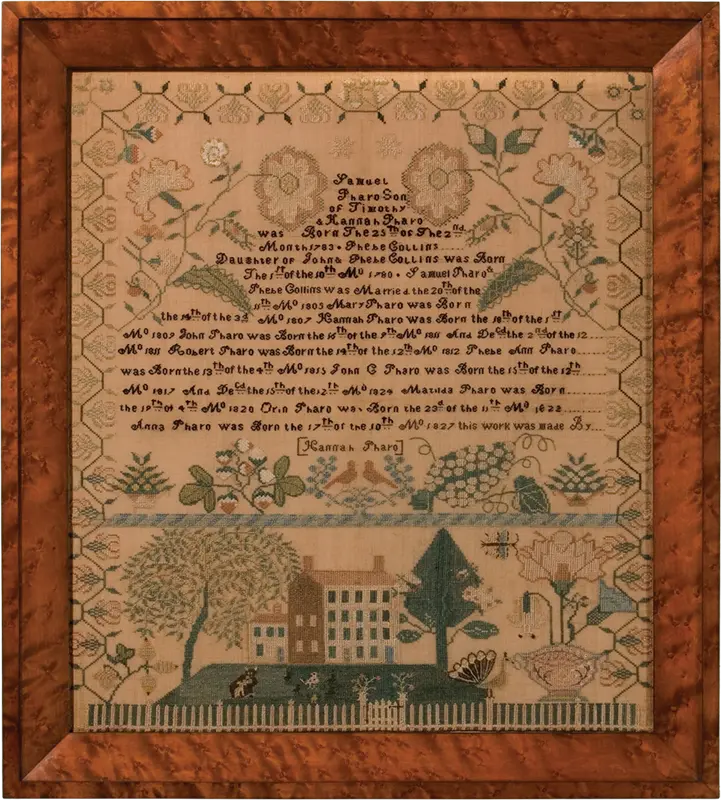 Samuel
Pharo Son
of Timothy
& Hannah Pharo
was Born The 25th of The 2nd
Month 1783 • Phebe Collins
Daughter of John & Phebe Collins was Born
The 1st of the 10th Mo 1780 • Samuel Pharo &
Phebe Collins was Married the 20th of the
11th Mo 1805 Mary Pharo was Born
the 14th of the 3d Mo 1807 Hannah Pharo was Born the 18th of the 1st
Mo 1809 John Pharo was Born the 16th of the Mo 1811 And Decd the 2nd of the 12
Mo 1811 Robert Pharo was Born the 14th of the 12th Mo 1812 Phebe Ann Pharo
was Born the 13th of the 4th Mo 1815 John C Pharo was Born the 15th of the 12th
Mo 1817 And Decd the 15th of the 12th Mo 1824 Matilda Pharo was Born
the 19th of 4th Mo 1820 Orin Pharo was Born the 23d of the 11th Mo 1822
Anna Pharo was Born the 17th of the 10th Mo 1827 this work was made By
[Hannah Pharo]